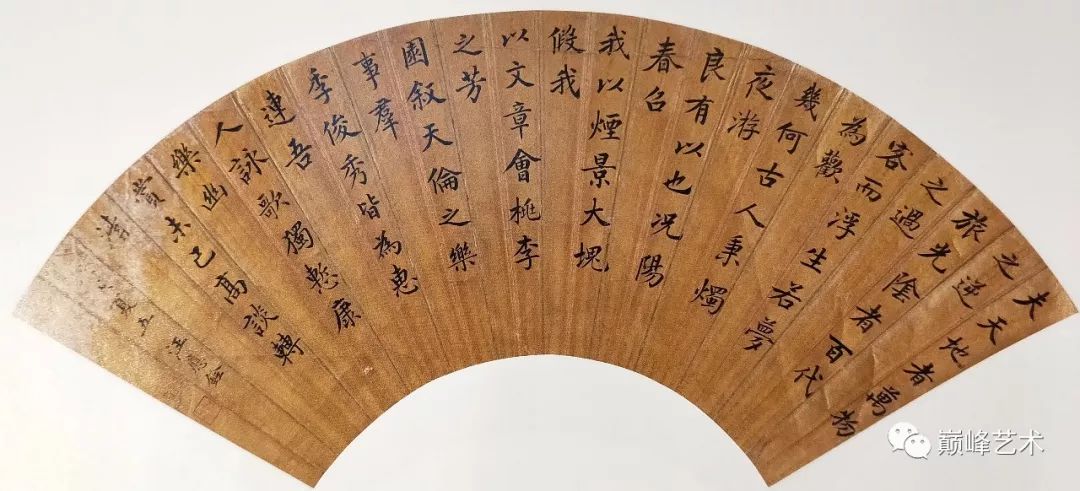 夫天地者萬物
之逆
旅光陰者百代
之過
客而浮生若夢
為歡
幾何古人秉燭
夜游
良有以也况陽
春召
我以煙景大塊
假我
以文章會桃李
之芳
園叙天倫之樂
事羣
季俊秀皆為惠
連吾
人詠歌獨慙康
樂幽
賞未已高談轉
清
夏五
汪應銓
巅峰艺术